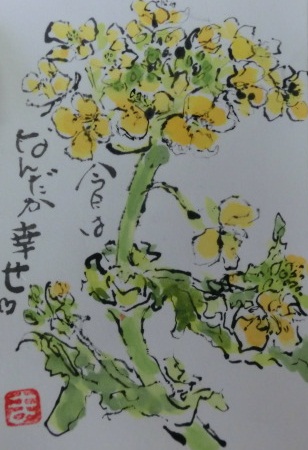 今日は
なんだか幸せ♡
ま